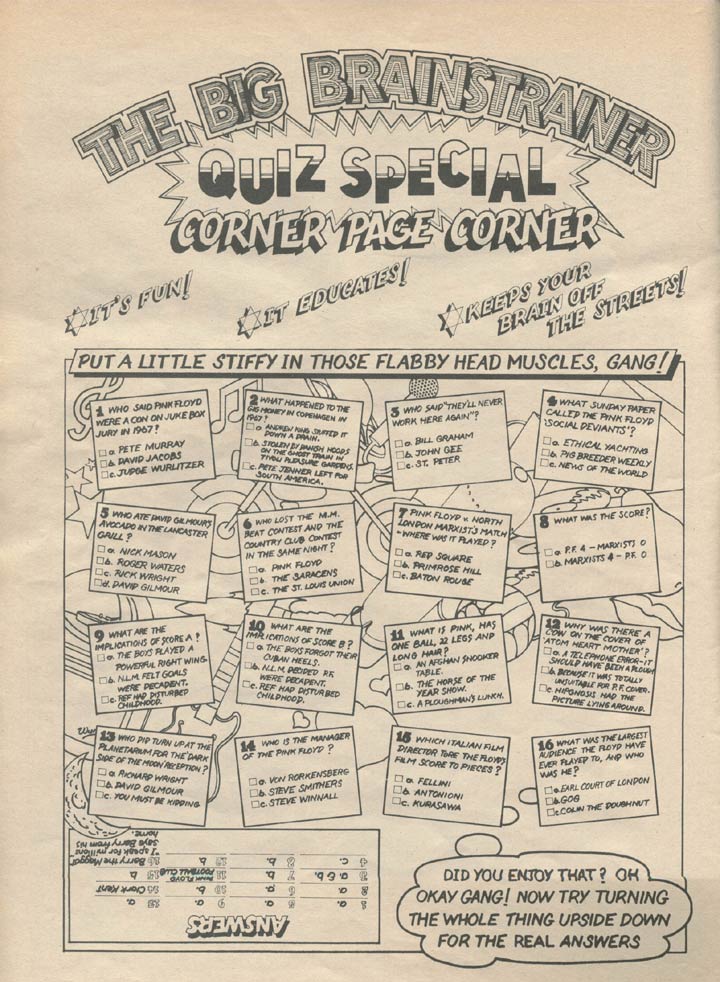 THE BIG BRAINSTRAINER
QUIZ SPECIAL
CORNER PAGE CORNER
IT'S FUN!
IT EDUCATES!
KEEPS YOUR
BRAIN OFF
THE STREETS!
PUT A LITTLE STIFFY IN THOSE FLABBY HEAD MUSCLES, GANG!
1 WHO SAID PINK FLOYD
WERE A CON ON JUKE BOX
JURY IN 1967?
a. PETE MURRAY
b. DAVID JACOBS
c. JUDGE WURLITZER
2 WHAT HAPPENED TO THE
GIG MONEY IN COPENHAGEN IN
1967?
a. ANDREW KING STUFFED IT
DOWN A DRAIN.
b. STOLEN BY DANISH HOODS
ON THE GHOST TRAIN IN
TIVOLI PLEASURE GARDENS.
c. PETE JENNER LEFT FOR
SOUTH AMERICA.
3 WHO SAID "THEY'LL NEVER
WORK HERE AGAIN"?
a. BILL GRAHAM
b. JOHN GEE
c. ST. PETER
4 WHAT SUNDAY PAPER
CALLED THE PINK FLOYD
'SOCIAL DEVIANTS'?
a. ETHICAL YACHTING
b. PIG BREEDER WEEKLY
c. NEWS OF THE WORLD
5 WHO ATE DAVID GILMOUR'S
AVOCADO IN THE LANCASTER
GRILL?
a. NICK MASON
b. ROGER WATERS
c. RICK WRIGHT
d. DAVID GILMOUR
6 WHO LOST THE M.M.
BEAT CONTEST AND THE
COUNTRY CLUB CONTEST
IN THE SAME NIGHT?
a. PINK FLOYD
b. THE SARACENS
c. THE ST. LOUIS UNION
7 PINK FLOYD v. NORTH
LONDON MARXISTS MATCH
- WHERE WAS IT PLAYED?
a. RED SQUARE
b. PRIMROSE HILL
c. BATON ROUGE
8 WHAT WAS THE SCORE?
a. P.F. 4 - MARXISTS 0
b. MARXISTS 4 - P.F. 0
9 WHAT ARE THE
IMPLICATIONS OF SCORE A?
a. THE BOYS PLAYED A
POWERFUL RIGHT WING.
b. N.L.M. FELT GOALS
WERE DECADENT.
c. REF HAD DISTURBED
CHILDHOOD.
10 WHAT ARE THE
IMPLICATIONS OF SCORE B?
a. THE BOYS FORGOT THEIR
CUBAN HEELS.
b. N.L.M. DECIDED P.F.
WERE DECADENT.
c. REF HAD DISTURBED
CHILDHOOD.
11 WHAT IS PINK, HAS
ONE BALL, 22 LEGS AND
LONG HAIR?
a. AN AFGHAN SNOOKER
TABLE.
b. THE HORSE OF THE
YEAR SHOW.
c. A PLOUGHMAN'S LUNCH.
12 WHY WAS THERE A
COW ON THE COVER OF
ATOM HEART MOTHER'?
a. A TELEPHONE ERROR-IT
SHOULD HAVE BEEN A PLOUGH
b. BECAUSE IT WAS TOTALLY
UNSUITABLE FOR P.F. COVER.
c. HIPGNOSIS HAD THE
PICTURE LYING AROUND.
13 WHO DID TURN UP AT THE
PLANETARIUM FOR THE DARK
SIDE OF THE MOON RECEPTION?
a. RICHARD WRIGHT
b. DAVID GILMOUR
c. YOU MUST BE KIDDING
14 WHO IS THE MANAGER
OF THE PINK FLOYD?
a. VON RORKENSBERG
b. STEVE SMITHERS
c. STEVE WINNALL
15 WHICH ITALIAN FILM
DIRECTOR TORE THE FLOYD'S
FILM SCORE TO PIECES?
a. FELLINI
b. ANTONIONI
c. KURASAWA
16 WHAT WAS THE LARGEST
AUDIENCE THE FLOYD HAVE
EVER PLAYED TO, AND WHO
WAS HE?
a. EARL COURT OF LONDON
b. GOG
c. COLIN THE DOUGHNUT
ANSWERS
1 a. 5 a. 9 a. 13 a.
2 a. 6 a. 10 b. 14 Clark Kent
3 a & b. 7 b. 11 PINK FLOYD FOOTBALL CLUB 15 b.
4 c. 8 b. 12 b. 16 Barry the Maggot
"I speak for millions"
says Barry from his
home.
DID YOU ENJOY THAT? OH
OKAY GANG! NOW TRY TURNING
THE WHOLE THING UPSIDE DOWN
FOR THE REAL ANSWERS